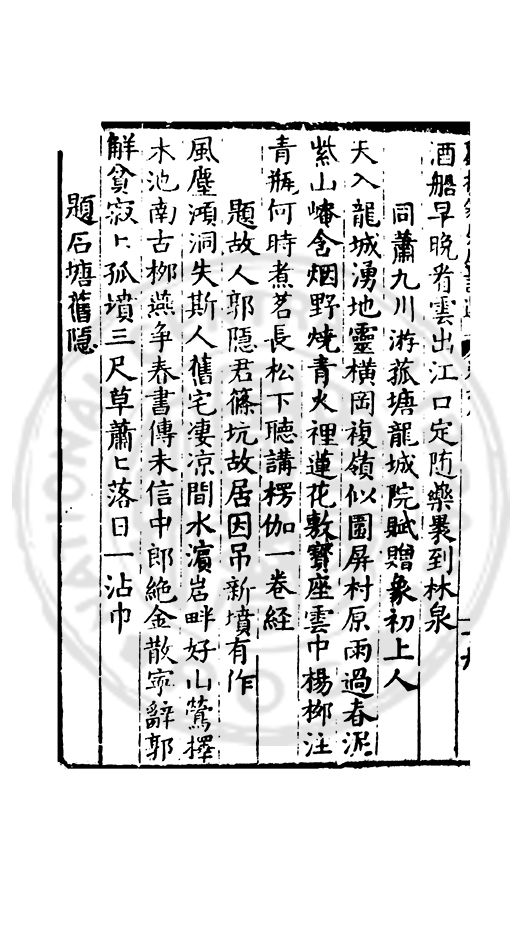 酒船早晚看雲出江口定随藥裹到林泉
同蕭九川游菰塘龍城院賦贈象初上人
天入龍城湧地靈橫岡複嶺似圍屏村原雨過春泥
紫山崦含烟野燒青火裡蓮花敷寶座雲中楊柳注
青瓶何時煮茗長松下聽講楞伽一卷経
題故人郭隱君篠坑故居因吊新墳有作
風塵澒洞失斯人舊宅凄凉間水濵岩畔好山鶯擇
木池南古柳燕争春書傳未信中郎絶金散寧辭郭
解貧寂〻孤墳三尺草蕭〻落日一沾巾
題石塘舊隱